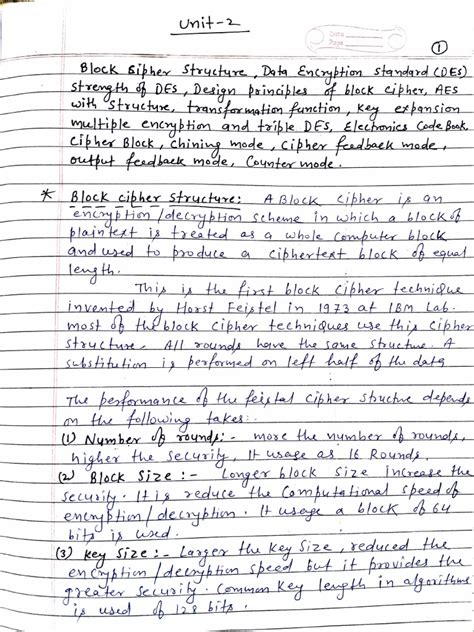 Unit-2
Date
Page
1
Block Cipher Structure, Data Encryption Standard (DES)
strength of DES, Design principles of block cipher, AES
with structure, transformation function, Key expansion
multiple encryption and triple DES, Electronics Code Book
Cipher Block, Chining mode, Cipher feedback mode,
output feedback mode, Counter mode.
* Block cipher structure: A Block Cipher is an
encryption/decryption scheme in which a block of
plaintext is treated as a whole computer block
and used to produce a ciphertext block of equal
length.
This is the first block cipher technique
invented by Horst Feistel in 1973 at IBM Lab.
most of the block cipher techniques use this cipher
structure. All rounds have the same structure. A
substitution is performed on left half of the data
The performance of the feistal cipher structure depends
on the following takes:
(1) Number of rounds:- more the number of rounds,
higher the security, It usage as 16 Rounds.
(2) Block Size :- Longer block size increase the
security. It is reduce the Computational speed of
encryption/decryption. It usage a block of 64
bits is used.
(3) Key Size :- Larger the Key Size, reduced the
encryption/decryption speed but it provides the
greater security. Common Key length in algorithms
is used of 128 bits.